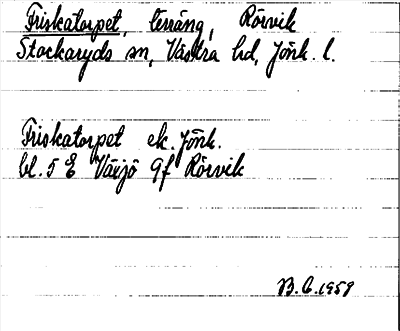 Friskatorpet, terräng, Rörvik
Stockaryds sn, Västra hd, Jönk. l.
Friskatorpet ek. Jönk.
bl. 5 E Växjö 9f Rörvik
B.G. 1959